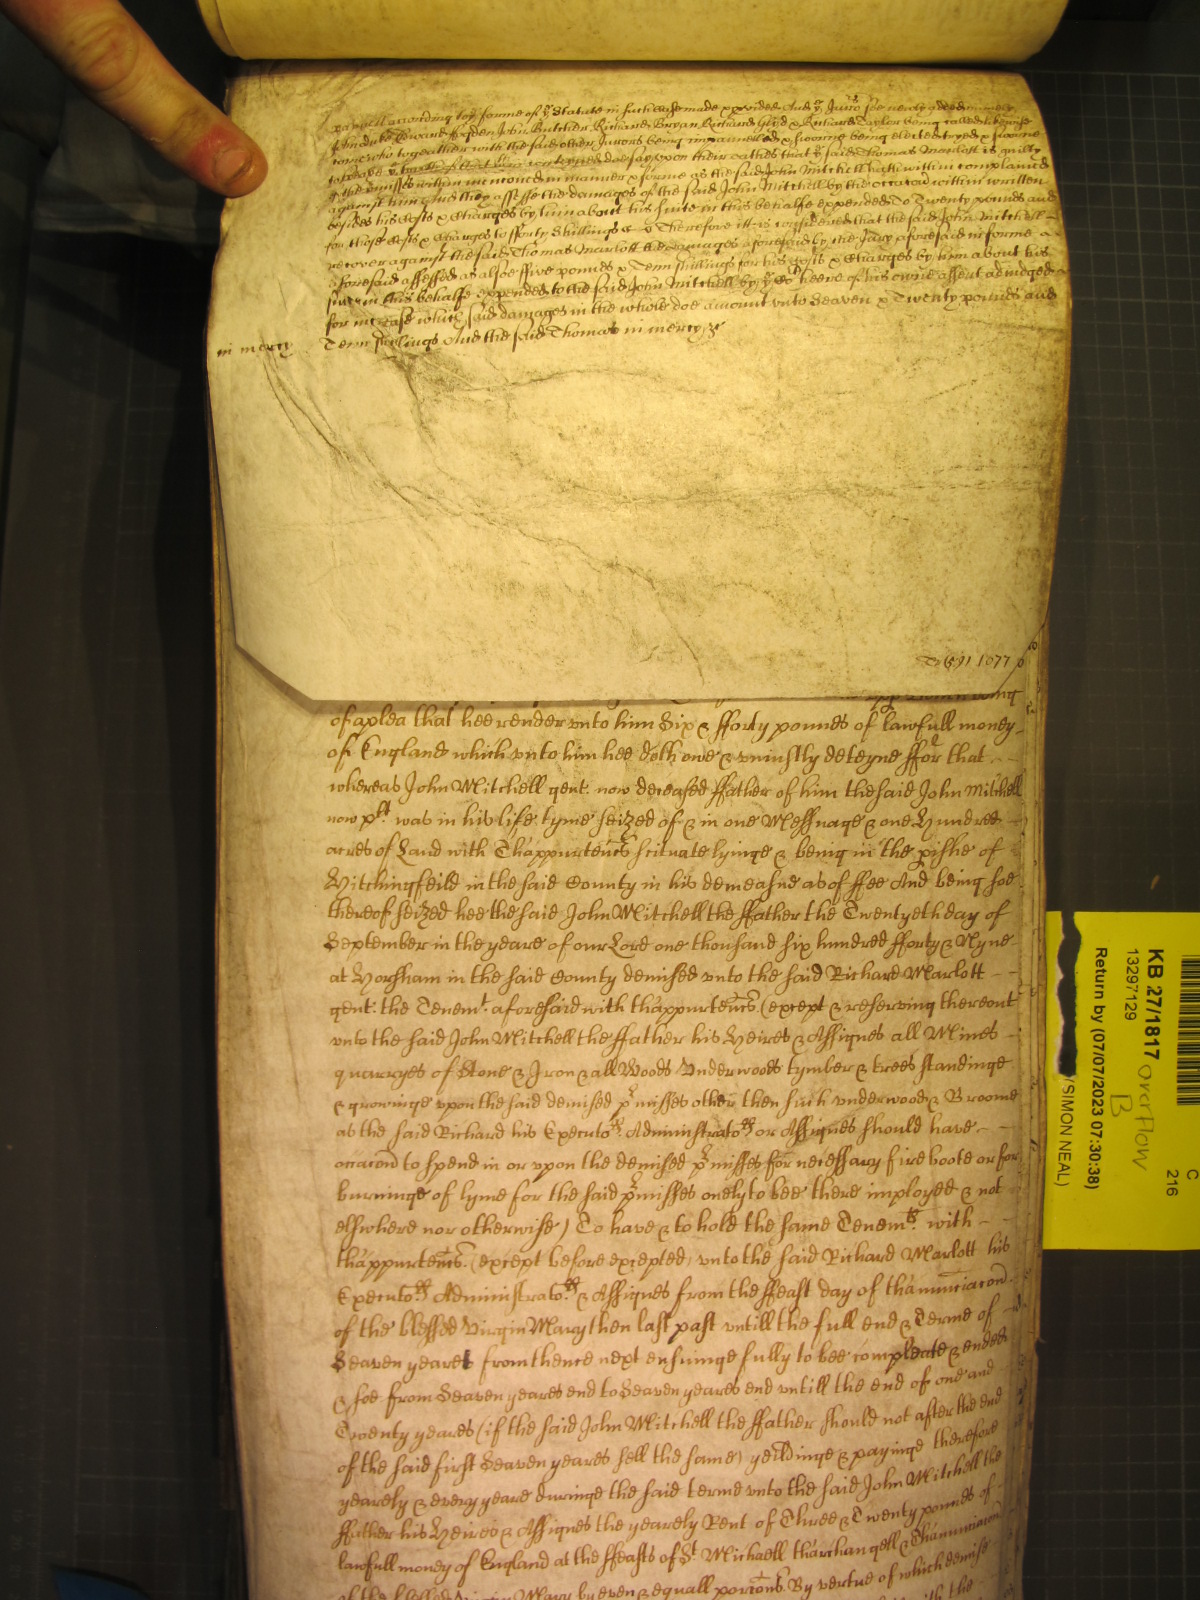 pannell according to ye forme of ye Statute in such case made & provided And ye Jurors
John Butcher Richard Bryan Richard & Richard Taylor being called likewise
come who togeather with the said other Jurors being impannelled & sworne being elected tryed & sworne
doe say upon their oathes that ye said Thomas Marlott is guilty
of the premisses within menconed in manner & forme as the said John Mitchell hath within complained
against him And they assesse the damages of the said John Mitchell by the occasion within written
besides his Costs & Charges by him about his suite in this behalfe expended to Twenty pounds and
for those Costs & Charges to fforty Shillings Therefore it is considered that the said John Mitchell
recover against the said Thomas Marlott the damages aforesaid by the Jury aforesaid in forme
aforesaid assessed as alsoe ffive pounds & Tenn shillings for his Costs & Charges by him about his
suite in this behalfe expended to the said John Mitchell by ye Co^rt heere of his owne assent adiudged
for increase which said damages in the whole doe amount unto Seaven & Twenty pounds and
in mercy Tenn shillings And the said Thomas in mercy &c
1077
of a plea that hee render vnto him Six & fforty pounds of lawfull money
of England which vnto him hee doth owe & vniustly deteyne ffor that
whereas John Mitchell gent: now deceased ffather of him the said John Mitchell
now plt was in his life tyme seized of & in one Messuage & one Hundred
acres of Land with Thappurtencs scituate lyinge & being in the pishe of
Hitchingfeild in the said County in his demeasne as of ffee And being soe
thereof seized hee the said John Mitchell the ffather the Twentyeth day of
September in the yeare of our Lord one thousand six hundred fforty & Nyne
at Horsham in the said County demised vnto the said Richard Marlott
gent: the Tenemt aforesaid with thappurtencs (except & reserving thereout
vnto the said John Mitchell the ffather his Heires & Assignes all Mines
quarryes of Stone & Iron & all Woods Vnderwoods tymber & trees standinge
& growinge vpon the said demised p'misses other then such vnderwood & Broome
as the said Richard his Executors Administrators or Assignes should have
occacon to spend in or vpon the demised p'misses for necessary fire boote or for
burninge of lyme for the said p'misses onely to bee there imployed & not
elswhere nor otherwise) To have & to hold the same Tenemts with
thappurtencs (except before excepted) vnto the said Richard Marlott his
Executors Administrators & Assignes from the ffeast day of thannunciacon
of the blessed Virgin Mary then last past vntill the full end & Terme of
Seaven yeares from thence next ensuinge fully to bee compleate & ended
& soe from Seaven yeares end to Seaven yeares end vntill the end of one and
Twenty yeares (if the said John Mitchell the ffather should not after the end
of the said first Seaven yeares sell the same) yeildinge & payinge therefore
yearely & every yeare duringe the said terme vnto the said John Mitchell the
ffather his Heires & Assignes the yearely Rent of Three & Twenty pounds of
lawfull money of England at the ffeasts of St Michaell tharchangell & Thannunciacon
of the blessed Virgin Mary by even & equall porcons. By vertue of which demise
KB 27/1817 overflow
B
13297129
Return by (07/07/2023 07:30:38)
(SIMON NEAL)
C
216